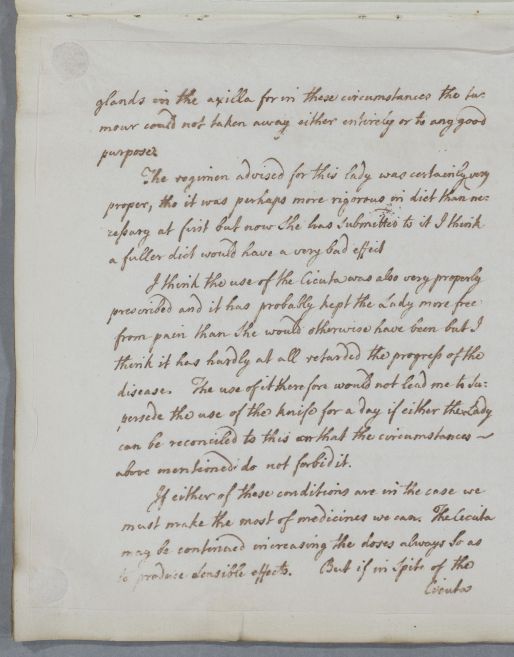 glands in the axilla for in these circumstances the tu-
mour could not taken away either entirely or to any good
purpose
The regimen advised for this lady was certainly very
proper, tho it was perhaps more rigorous in diet than ne-
cessary at first but now She has Submitted to it I think
a fuller diet would have a very bad effect
I think the use of the Cicuta was also very properly
prescribed and it has probably kept the Lady more free
from pain than She would otherwise have been but I
think it has hardly at all retarded the progress of the
disease. The use of it therefore would not lead me to Su-
persede the use of the knife for a day if either the Lady
can be reconciled to this or that the circumstances
above mentioned do not forbid it.
If either of these conditions are in the case we
must make the most of medicines we can. The Cicuta
may be continued increasing the doses always So as
to produce Sensible effects. But if in Spite of the
Cicuta